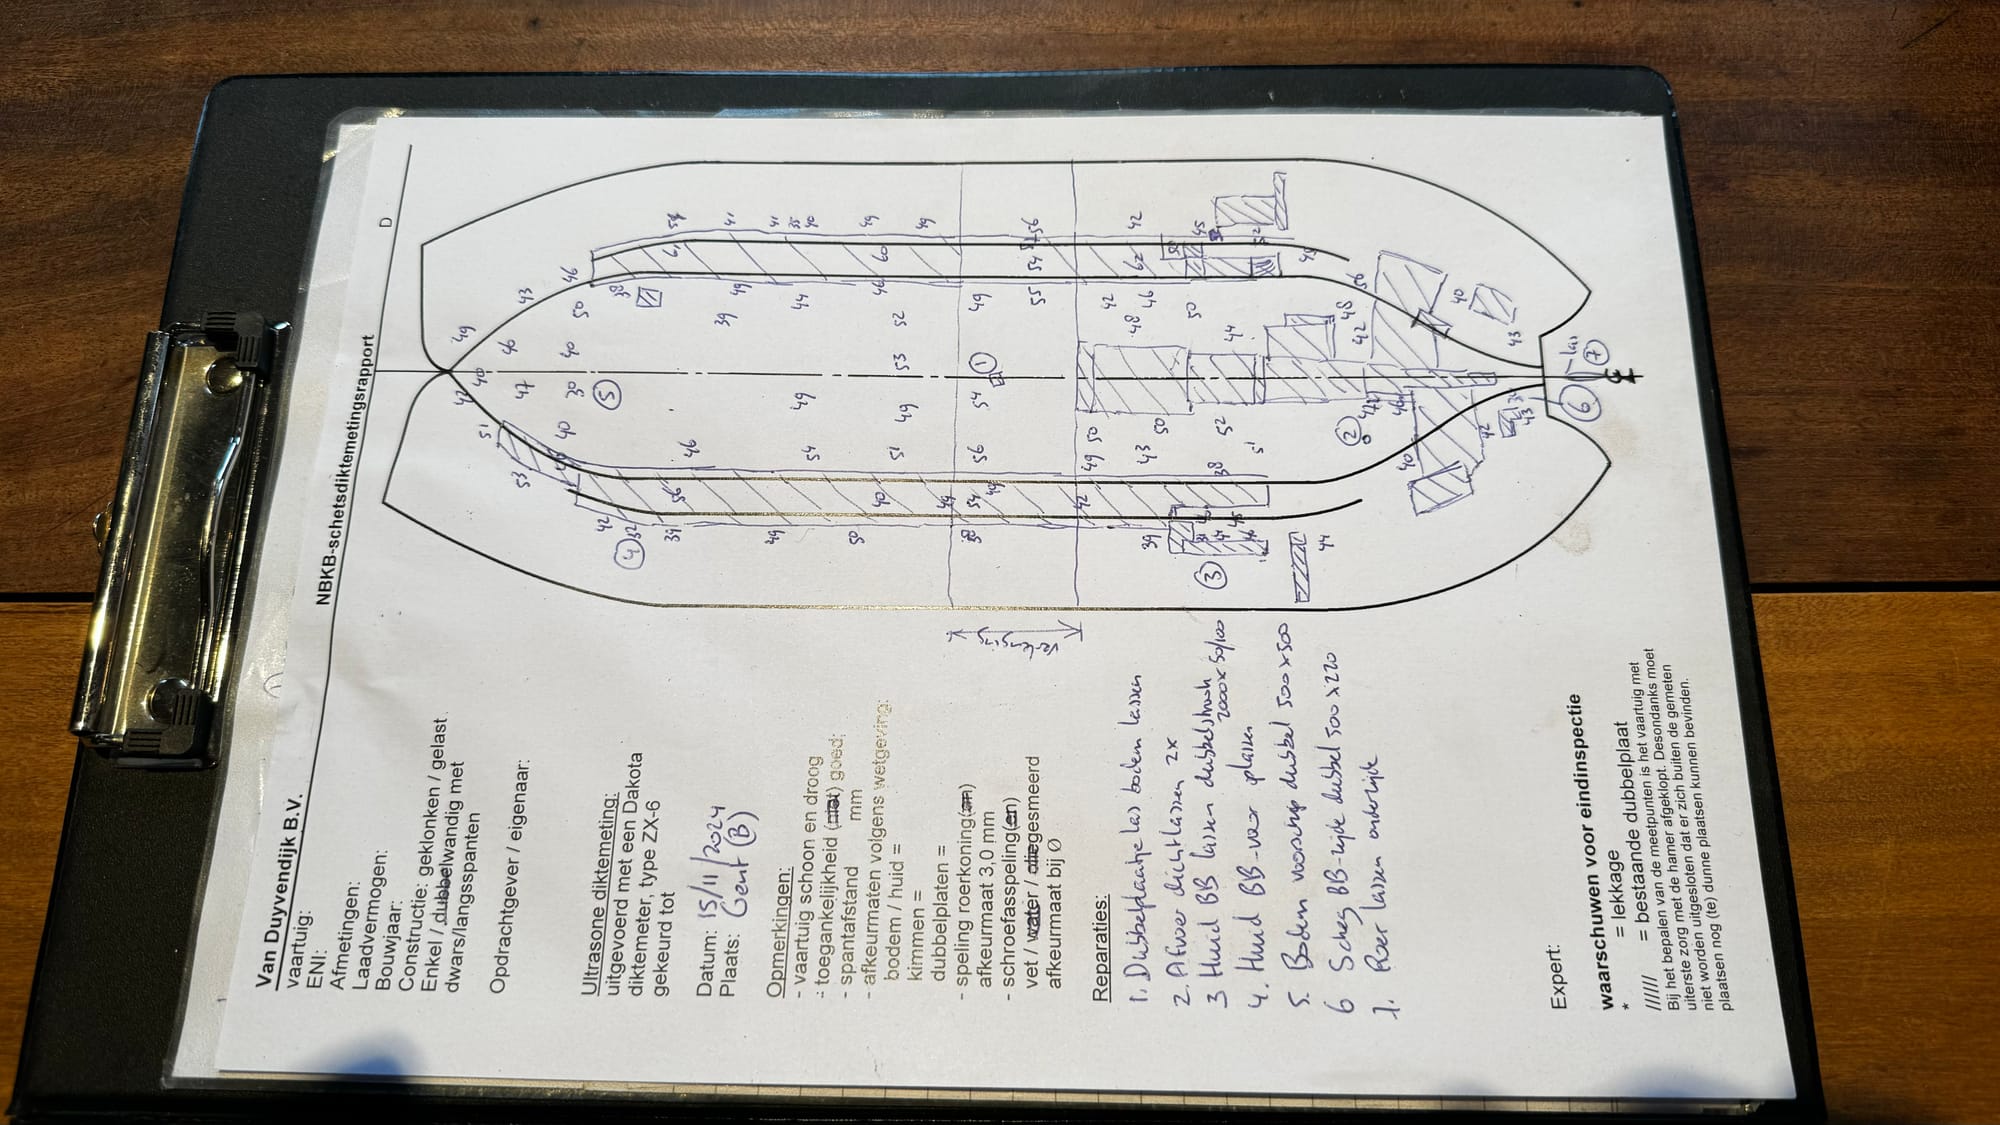 NBKB-schetsdiktemetingsrapport
D
Van Duyvendijk B.V.
vaartuig:
ENI:
Afmetingen:
Laadvermogen:
Bouwjaar:
Constructie: geklonken / gelast
Enkel / dubbelwandig met
dwars/langsspanten
Opdrachtgever / eigenaar:
Ultrasone diktemeting:
uitgevoerd met een Dakota
diktemeter, type ZX-6
gekeurd tot
Datum: 15/11/2024
Plaats: Gent (B)
Opmerkingen:
- vaartuig schoon en droog
- toegankelijkheid (niet) goed:
- spantafstand mm
- afkeurmaten volgens wetgeving:
bodem / huid =
kimmen =
dubbelplaten =
- speling roerkoning(en)
afkeurmaat 3,0 mm
- schroefasspeling(en)
vet / water / oliegesmeerd
afkeurmaat bij Ø
Reparaties:
1. Dubbelplaatje las bodem lassen
2. Afvoer dichtlassen 2x
3 Huid BB lassen dubbelstrook
2000x50/100
4. Huid BB-voor plassen
5. Bodem voorschip dubbel 500x500
6 Scheg BB-zijde dubbel 500x220
7. Roer lassen onderzijde
Expert:
waarschuwen voor eindinspectie
* = lekkage
////// = bestaande dubbelplaat
Bij het bepalen van de meetpunten is het vaartuig met
uiterste zorg met de hamer afgeklopt. Desondanks moet
niet worden uitgesloten dat er zich buiten de gemeten
plaatsen nog (te) dunne plaatsen kunnen bevinden.
verlenging
41
41
35
40
49
49
56
42
45
46
61
60
54
62
43
50
38
49
44
46
49
55
42
46
50
56
49
46
40
39
52
48
44
48
42
40
43
40
47
30
5
53
1
las
7
42
49
49
54
50
50
52
2
6
43
51
40
46
54
51
56
49
43
38
51
40
42
53
56
40
49
54
42
45
42
32
4
39
49
50
38
39
3
44